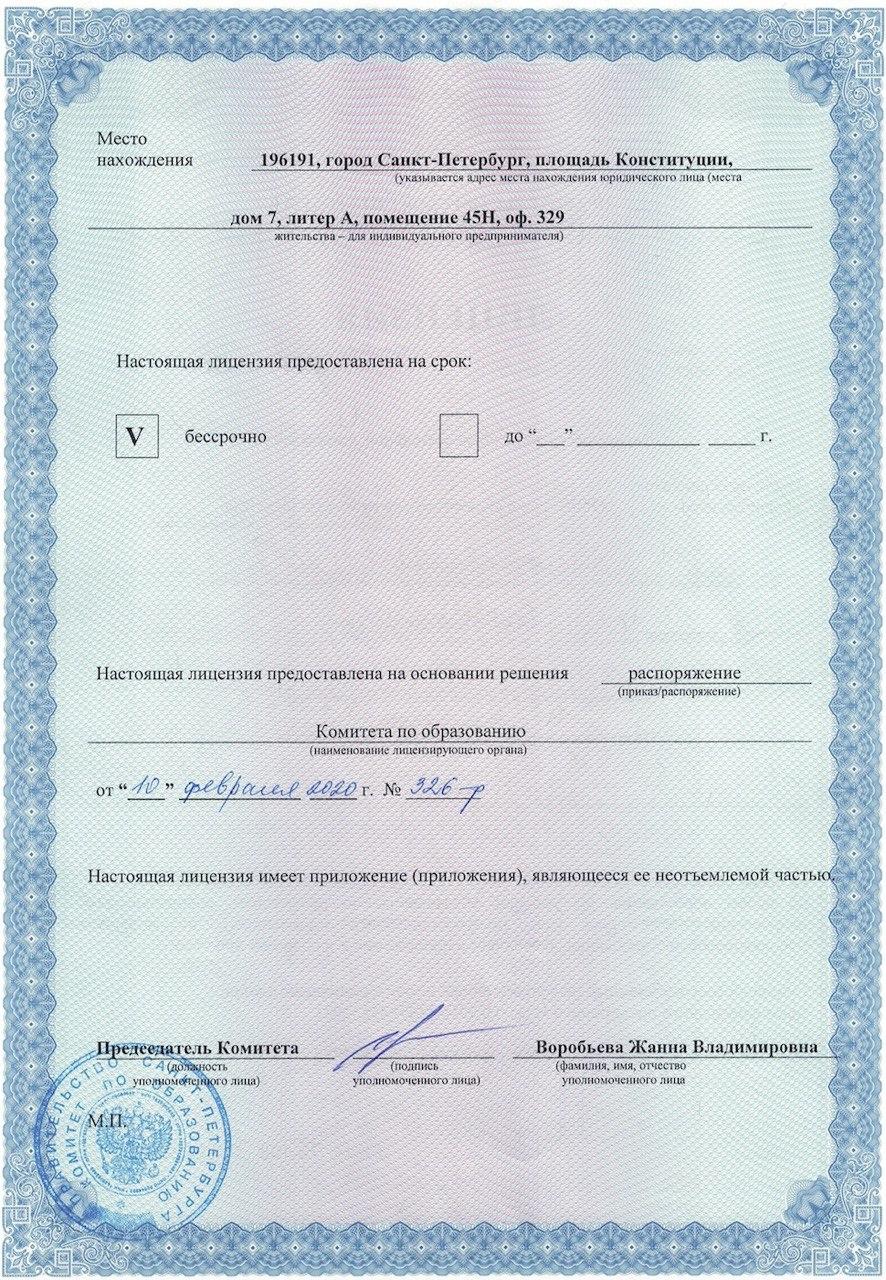 Место
нахождения 196191, город Санкт-Петербург, площадь Конституции,
(указывается адрес места нахождения юридического лица (места
дом 7, литер А, помещение 45Н, оф. 329
жительства – для индивидуального предпринимателя)
Настоящая лицензия предоставлена на срок:
V бессрочно до “___” ____________ _____ г.
Настоящая лицензия предоставлена на основании решения распоряжение
(приказ/распоряжение)
Комитета по образованию
(наименование лицензирующего органа)
от “10” февраля 2020 г. № 326-р
Настоящая лицензия имеет приложение (приложения), являющееся ее неотъемлемой частью.
Председатель Комитета Воробьева Жанна Владимировна
(должность (подпись (фамилия, имя, отчество
уполномоченного лица) уполномоченного лица) уполномоченного лица
М.П.
ПРАВИТЕЛЬСТВО САНКТ-ПЕТЕРБУРГА
КОМИТЕТ ПО ОБРАЗОВАНИЮ